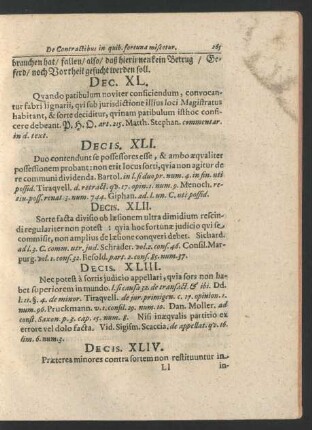 De Contractibus in quib. fortuna miscetur. 265
brauchen hat / fallen / also / daß hierinnen kein Betrug / Ge-
ferd / noch Vortheil gesucht werden soll.
DEC. XL.
Quando patibulum noviter conficiendum, convocan-
tur fabri lignarii, qui sub jurisdictione illius loci Magistratus
habitant, & sorte deciditur, qvinam patibulum isthoc confi-
cere debeant. P. H. O. art. 215. Matth. Stephan. commentar.
in d. text.
DECIS. XLI.
Duo contendunt se possessores esse, & ambo æqvaliter
possessionem probant: non erit locus sorti, qvia non agitur de
re communi dividenda. Bartol. in l. si duo pr. num. 4. in fin. uti
possid. Tiraqvell. d. retract. qv. 17. opin. 1. num. 9. Menoch. re-
tin. poss. remed. 3. num. 744. Giphan. ad l. un. C. uti possid.
DECIS. XLII.
Sorte facta divisio ob læsionem ultra dimidium rescin-
di regulariter non potest: qvia hoc fortunæ judicio qui se
commisit, non amplius de læsione conqveri debet. Sichard.
ad l. 3. C. comm. utr. jud. Schrader. vol. 2. cons. 46. Consil. Mar-
purg. vol. 1. cons. 32. Besold. part. 2. cons. 85. num. 37.
DECIS. XLIII.
Nec potest à sortis judicio appellari, qvia sors non ha-
bet superiorem in mundo. l. si causa 32. de transact. & ibi. Dd.
l. 11. §. 4. de minor. Tiraqvell. de jur. primigen. c. 17. opinion. 2.
num. 96. Pruckmann. vol. 1. consil. 29. num. 10. Dan. Moller. ad
const. Saxon. p. 3. cap. 15. num. 8. Nisi inæqvalis partitio ex
errore vel dolo facta. Vid. Sigism. Scaccia. de appellat. qv. 16.
lim. 6. num. 5.
DECIS. XLIV.
Præterea minores contra sortem non restituuntur in
Ll in-